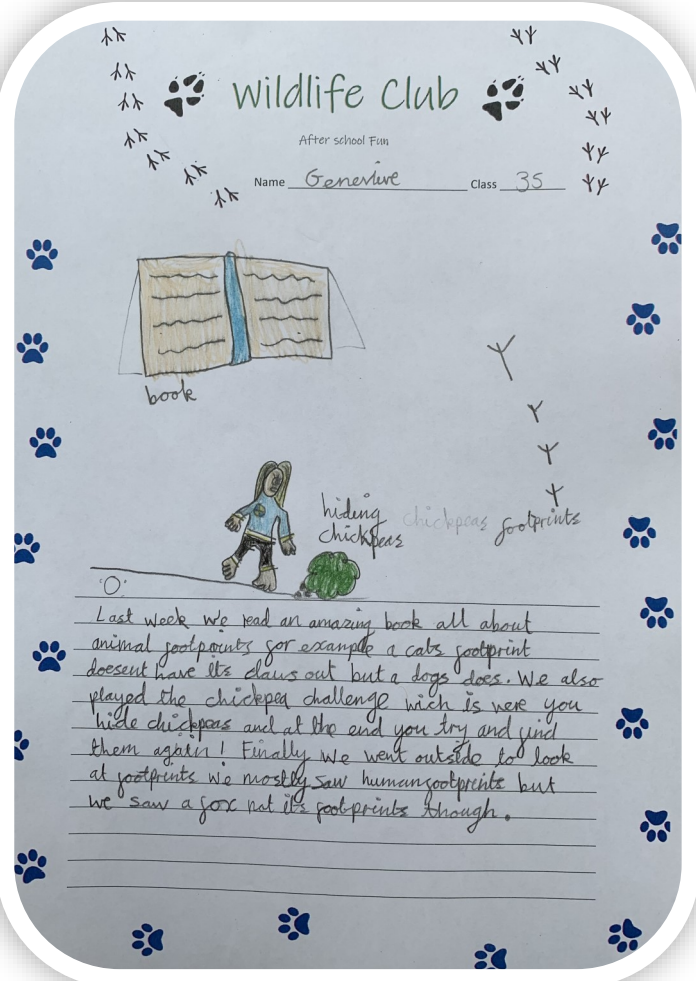 Wildlife Club
After school Fun
Name Genevive Class 3S
book
hiding chickpeas footprints
chickpeas
"O"
Last week we read an amazing book all about
animal footprints for example a cats footprint
doesent have its claws out but a dogs does. We also
played the chickpea challenge wich is were you
hide chickpeas and at the end you try and find
them again! Finally we went outside to look
at footprints we mostly saw human footprints but
we saw a fox not its footprints though.